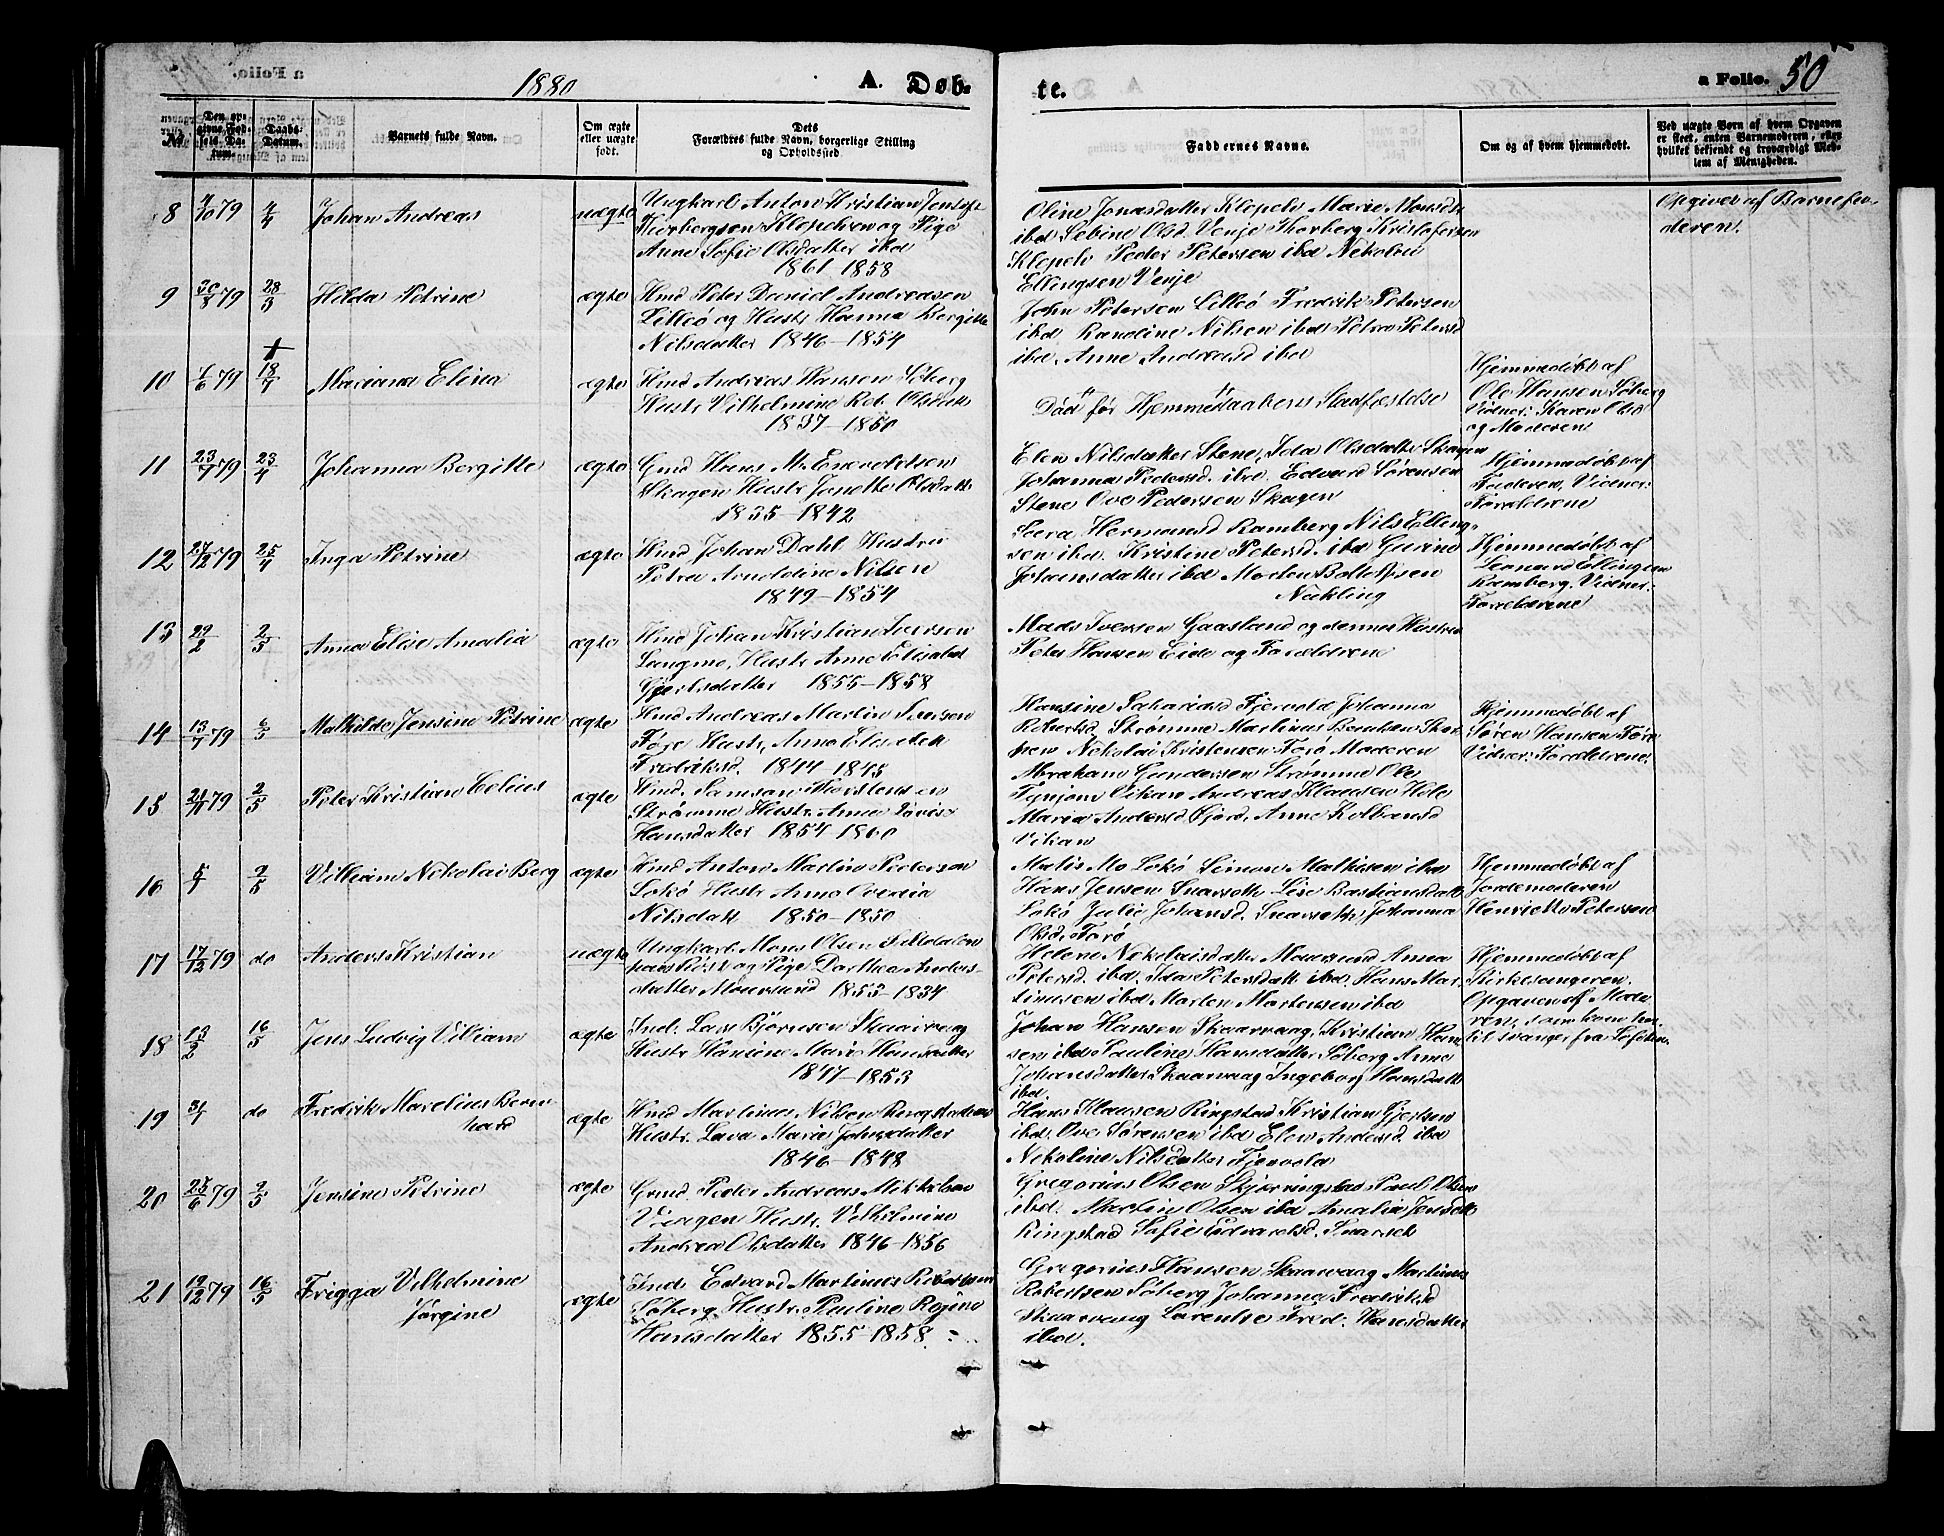 1880
A. Døb-
te.
a Folio. 50
№
Den opgivne Fødsels Datum.
Daabs-Datum.
Barnets fulde Navn.
Om ægte eller uægte født.
Dets Forældres fulde Navn, borgerlige Stilling og Opholdssted.
Faddernes Navne.
Om og af hvem hjemmedøbt.
Ved uægte Børn af hvem Opgaven er skeet, enten Barnemoderen, eller hvilket bekjendt og troværdigt Medlem af Menigheden.
8 9/10 79 4/4 Johan Andreas uægte
Ungkarl Anton Kristian
og Pige
Anne Sofie Olsdatter ibd
1861 1858
Oline Jonasdatter Klopelv Marie
ibd Sebine Olsd. Venje Thorberg Kristofersen
Klopelv Peder Petersen ibd Nikolai
Ellingsen Venje
Opgivet af Barnefa-
deren.
9 30/8 79 28/3 Hilda Petrine ægte
Hmd Peter Daniel Andreasen
Lilleö og Hustr Hanna Bergitte
Nilsdatter 1846-1854
John Petersen Lilleö Fredrik Petersen
ibd Randine Nilsen ibd Petra Petersd
ibd. Anne Andreasd ibd
10 1/6 79 18/7 Mariane Elina ægte
Hmd Andreas Hansen Söberg
Hustr Vilhelmine Reb. Olsdatt
1837-1850
Död för Hjemmedaabens Stadfæstelse
Hjemmedøbt af
Ole Hansen Söberg
Vidner: Karen Olsd
og Moderen
11 23/7 79 23/4 Johanna Bergitte ægte
Gmd Hans M. Enevoldsen
Skagen Hustr Jonette Olsdatt
1835-1842
Elen Nilsdatter Stene, Ida Olsdatter Skagen
Johanna Pedersd. ibd. Edvard Sørensen
Stene Ove Pedersen Skagen
Hjemmedøbt af
Faderen, Vidner:
Forældrene
12 27/12 79 25/4 Inga Petrine ægte
Hmd Johan Dahl Hustru
Petra Arnoldine Nilsen
1849-1854
Sara Hermansd Ramberg Nils Elling-
sen ibd. Kristine Petersd. ibd Gurine
Johansdatter ibd Morten
Hjemmedøbt af
Leonard Ellingsen
Ramberg. Vidner:
Forældrene
13 29/2 2/5 Anna Elise Amalia ægte
Hmd Johan Kristian Iversen
Langmo, Hustr Anne Elisabet
Gjertsdatter 1855-1858
Mads Iversen Gaasland og dennes Hustru
Peter Hansen Eide og Forældrene
14 13/7 79 6/5 Mathilde Jensine Petrine ægte
Hmd Andreas Martin Iversen
Hustr. Anne Elisabeth
Fredriksd. 1844-1845
Hansine Sakariasd Fjærvold Johanna
Robertsd. Strömme Martinus Berntsen
Nikolai Kristensen Forö Moderen
Hjemmedøbt af
Sören Hansen Forö
Vidner: Forældrene
15 79 2/5 Peter Kristian Celius ægte
Hmd. Samson Torstensen
Strömme Hustr. Anna Lovise
Hansdatter 1854-1860
Abraham Gundersen Strömme Ole
Vikan Andreas Klausen Hole
Maria Andersd Fjord, Anne Kolbansd
Vikan
16 5/1 2/5 Vilhiam Nikolai Berg ægte
Hmd Anton Martin Pedersen
Lokö Hustr Anne Overdia
Nilsdatt 1850-1850
Matis Mo Lokö Simon Mathisen ibd
Hans Jensen Snarset Lise Bastiansdatt
Lokö Julie Johansd. Snarset, Johanna
Olsd. Forö
Hjemmedøbt af
Jordemoderen
Henriette Petersen
17 17/12 79 do Anders Kristian uægte
Ungkarl Mons Olsen
og Pige Dorthea Anders-
datter Maursund 1853-1834
Helene Nikolaisdatter Maursund Anna
Petersd. ibd. Ida Petersdatt ibd. Hans Mar-
tinusen ibd Marten Martensen ibd
Hjemmedøbt af
Kirkesangeren.
Opgaven af Mode-
ren, som kom her-
til svanger fra Lofoten
18 13/2 16/5 Jens Ludvig Viliam ægte
Ind. Lars Björnsen Skaarvaag
Hustr Hansine Marie Hansdatter
1847-1853
Johan Hansen Skaarvaag, Kristian Han-
sen ibd Pauline Hansdatter Söberg Anne
Johansdatter Skaarvaag Ingeborg Hansdatt
ibd.
19 31/1 do Fredrik Marelius Bern-
hard ægte
Hmd Martinus Nilsen Ringstad
Hustr. Lava Marie Johnsdatter
1846-1848
Hans Klausen Ringstad Kristian Gjertsen
ibd. Ove Sørensen ibd Elen Andersd. ibd
Nikoline Nilsdatter Fjærvold
20 25/6 79 2/5 Jensine Petrine ægte
Gmd Peder Andreas Mikkelsen
Hustr. Vilhelmine
Andrea Olsdatter 1846-1856
Gregorius Olsen Skjærvingstad Paul Olsen
ibd. Martin Olsen ibd Amalia Jensdatt
Ringstad Sofie Edvardsd. Snarset
21 19/12 79 16/5 Frigga Vilhelmine
Jørgine ægte
Ind. Edvard Martinus Robertsen
Söberg Hustr. Pauline Regine
Hansdatter 1855-1858.
Gregorius Hansen Skaarvaag Martinus
Robertsen Söberg Johanna Fredriksd
Skaarvaag Lorentse Fred. Hansdatter
ibd.